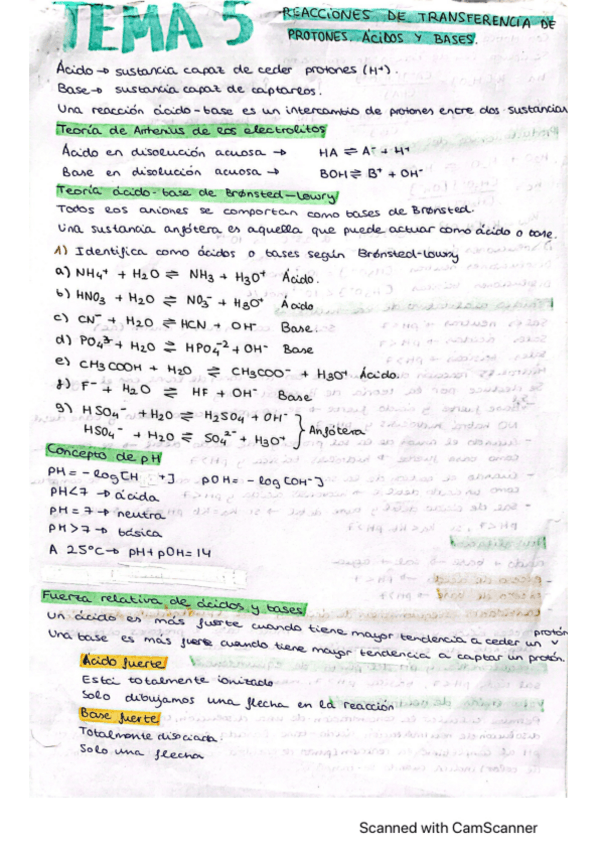 TEMA 5
REACCIONES DE TRANSFERENCIA DE
PROTONES. ÁCIDOS Y BASES.
Ácido → sustancia capaz de ceder protones (H⁺).
Base → sustancia capaz de captarlos.
Una reacción ácido-base es un intercambio de protones entre dos sustancias
Teoría de Arrhenius de los electrolitos
Ácido en disolución acuosa → HA ⇌ A⁻ + H⁺
Base en disolución acuosa → BOH ⇌ B⁺ + OH⁻
Teoría ácido-base de Brønsted-Lowry
Todos los aniones se comportan como bases de Brønsted.
Una sustancia anfótera es aquella que puede actuar como ácido o base.
1) Identifica como ácidos o bases según Brønsted-Lowry
a) NH₄⁺ + H₂O ⇌ NH₃ + H₃O⁺ Ácido.
b) HNO₃ + H₂O ⇌ NO₃⁻ + H₃O⁺ Ácido
c) CN⁻ + H₂O ⇌ HCN + OH⁻ Base.
d) PO₄³⁻ + H₂O ⇌ HPO₄⁻² + OH⁻ Base
e) CH₃COOH + H₂O ⇌ CH₃COO⁻ + H₃O⁺ Ácido.
f) F⁻ + H₂O ⇌ HF + OH⁻ Base
g) HSO₄⁻ + H₂O ⇌ H₂SO₄ + OH⁻
HSO₄⁻ + H₂O ⇌ SO₄²⁻ + H₃O⁺ } Anfótera
Concepto de pH
pH = - log [H +] pOH = - log [OH⁻]
pH < 7 → ácida
pH = 7 → neutra
pH > 7 → básica
A 25°C → pH + pOH = 14
Fuerza relativa de ácidos y bases
Un ácido es más fuerte cuando tiene mayor tendencia a ceder un protón
Una base es más fuerte cuando tiene mayor tendencia a captar un protón.
Ácido fuerte
Está totalmente ionizado
Solo dibujamos una flecha en la reacción
Base fuerte
Totalmente disociada
Solo una flecha
Scanned with CamScanner